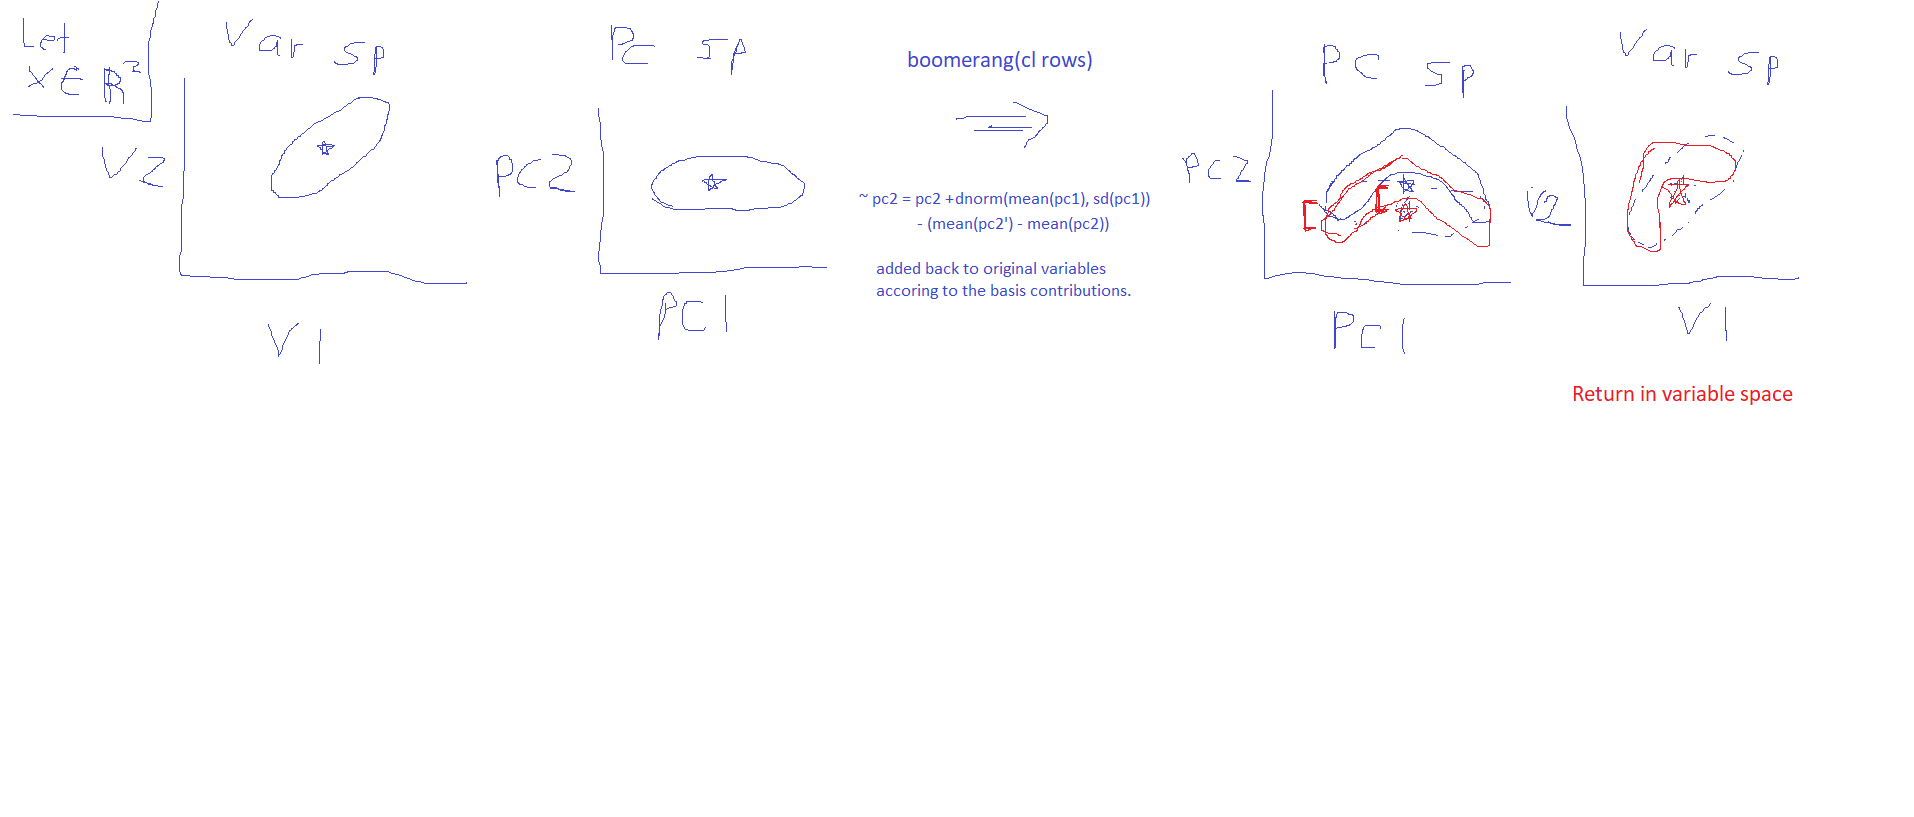 Let
x ∈ ℝ²
Var sp
V2
V1
PC sp
PC2
PC1
boomerang(cl rows)
~ pc2 = pc2 +dnorm(mean(pc1), sd(pc1))
- (mean(pc2') - mean(pc2))
added back to original variables
accoring to the basis contributions.
PC sp
PC2
PC1
Var sp
V2
V1
Return in variable space